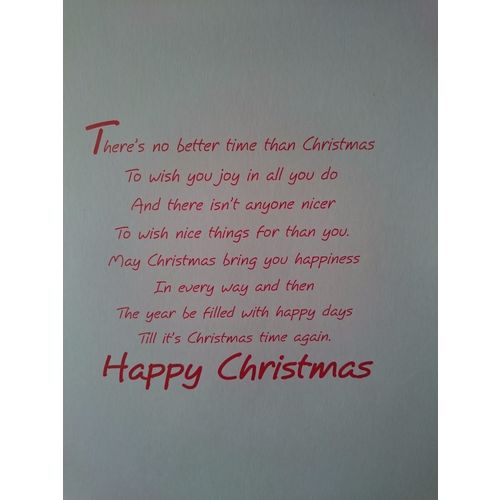 There's no better time than Christmas
To wish you joy in all you do
And there isn't anyone nicer
To wish nice things for than you.
May Christmas bring you happiness
In every way and then
The year be filled with happy days
Till it's Christmas time again.
Happy Christmas